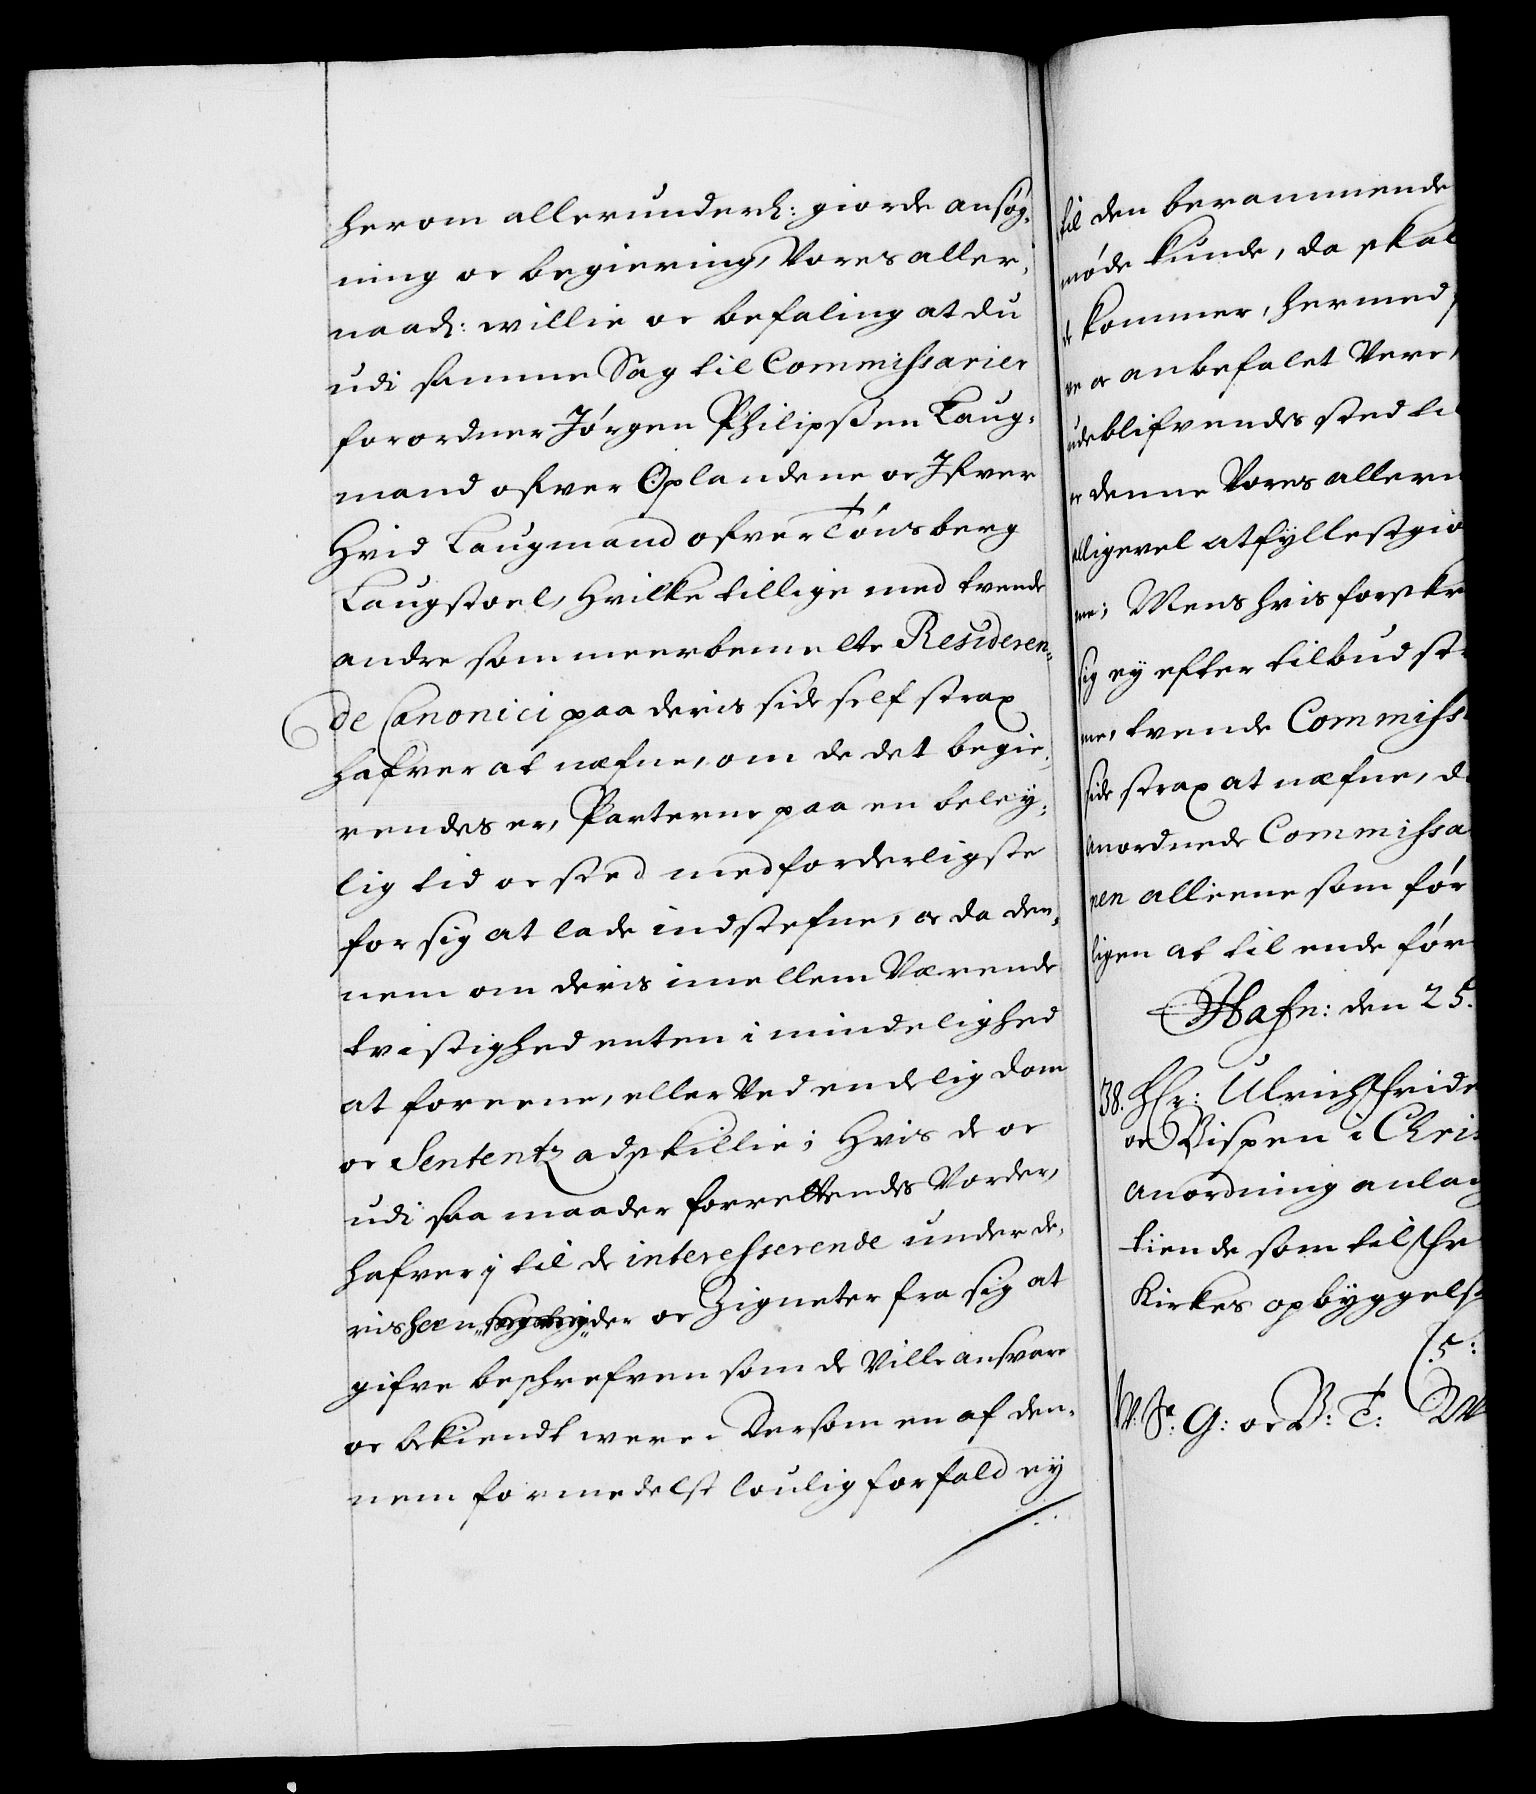 herom allerunderd: giorde ansøg-
ning oc begiering, Vores aller-
naad: willie oc befaling at du
udi samme Sag til Commissarier
forordner Jørgen Philipsøn Laug-
mand ofver Oplandene oc Ifver
Hvid Laugmand ofver Tønsberg
Laugstoel, Hvilke tillige med tvende
andre som meerbemelte Residern-
de Canonici paa deris side self strax
hafver at nefne, om de det begie-
rendes er, Parterne paa en beley-
lig tid oc sted med forderligste
for sig at lade indstefne, oc da den-
nem om deris imellem Værende
tvistighed enten i mindelighed
at foreene, eller Ved endelig dom
oc Sententz adskillie; Hvis de oc
udi saa maader forrettendes Vorder,
hafver i til de interesserende under de-
ris hen der oc Zigneter fra sig at
gifve beschrefven som de Ville ansvare
oc bekiendt were. Dersom en af den-
nem formedelst loulig forfald ey
til den berammende
møde kunde, da skal
kommer, hermed
oc anbefalet Vere,
udeblifvendes sted
denne Vores allern
alligevel at fyllestgiø
Mens hvis forskr
sig ey efter tilbud st
tvende Commiss
side strax at nefne, d
anordnede Commissa
pen alleene som før
ligen at til ende før
Hafn: den 25.
38. Hr: Ulrich Fride
oc Bispen i Chris
Anordning anlan
tiende som til Thr
Kirkes opbyggelse
G: oc V: T: